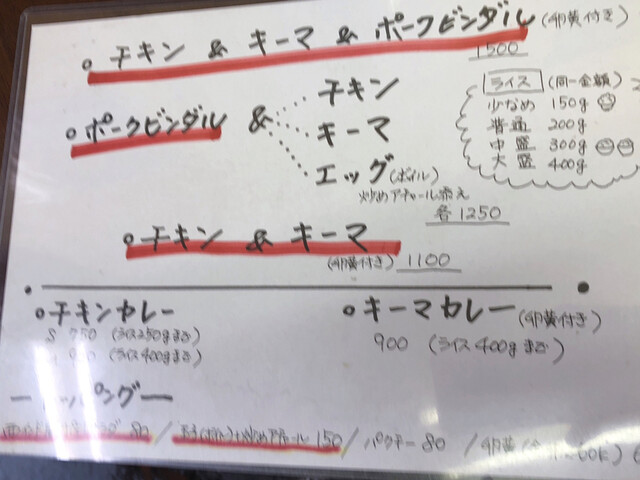 チキン & キーマ & ポークビンダル (卵黄付き)
1500
ポークビンダル & チキン
キーマ
エッグ (ボイル)
炒めアチャール添え
各1250
ライス (同一金額)
少なめ 150g
普通 200g
中盛 300g
大盛 400g
チキン & キーマ
(卵黄付き) 1100
チキンカレー
S 750 (ライス250gまで)
(ライス400gまで)
キーマカレー (卵黄付き)
900 (ライス400gまで)
ッピング
80 / 炒めアチャール 150 / パクチー 80 / 卵黄